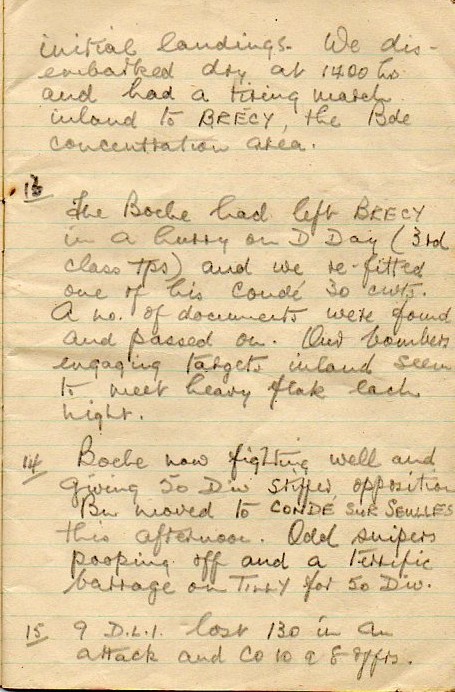 initial landings. We dis-
embarked dry at 1400 hrs
and had a tiring march
inland to BRECY, the Bde
concentration area.
13
The Boche had left BRECY
in a hurry on D Day (3rd
class tps) and we re-fitted
one of his Condé 30 cwts.
A no. of documents were found
and passed on. Our bombers
engaging targets inland seem
to meet heavy flak each
night.
14 Boche now fighting well and
giving 50 Div stiffer opposition
Bn moved to CONDÉ SUR SEULLES
this afternoon. Odd snipers
pooping off and a terrific
barrage on TILLY for 50 Div.
15 9 D.L.I. lost 130 in an
attack and CO 10 & 8 offrs.